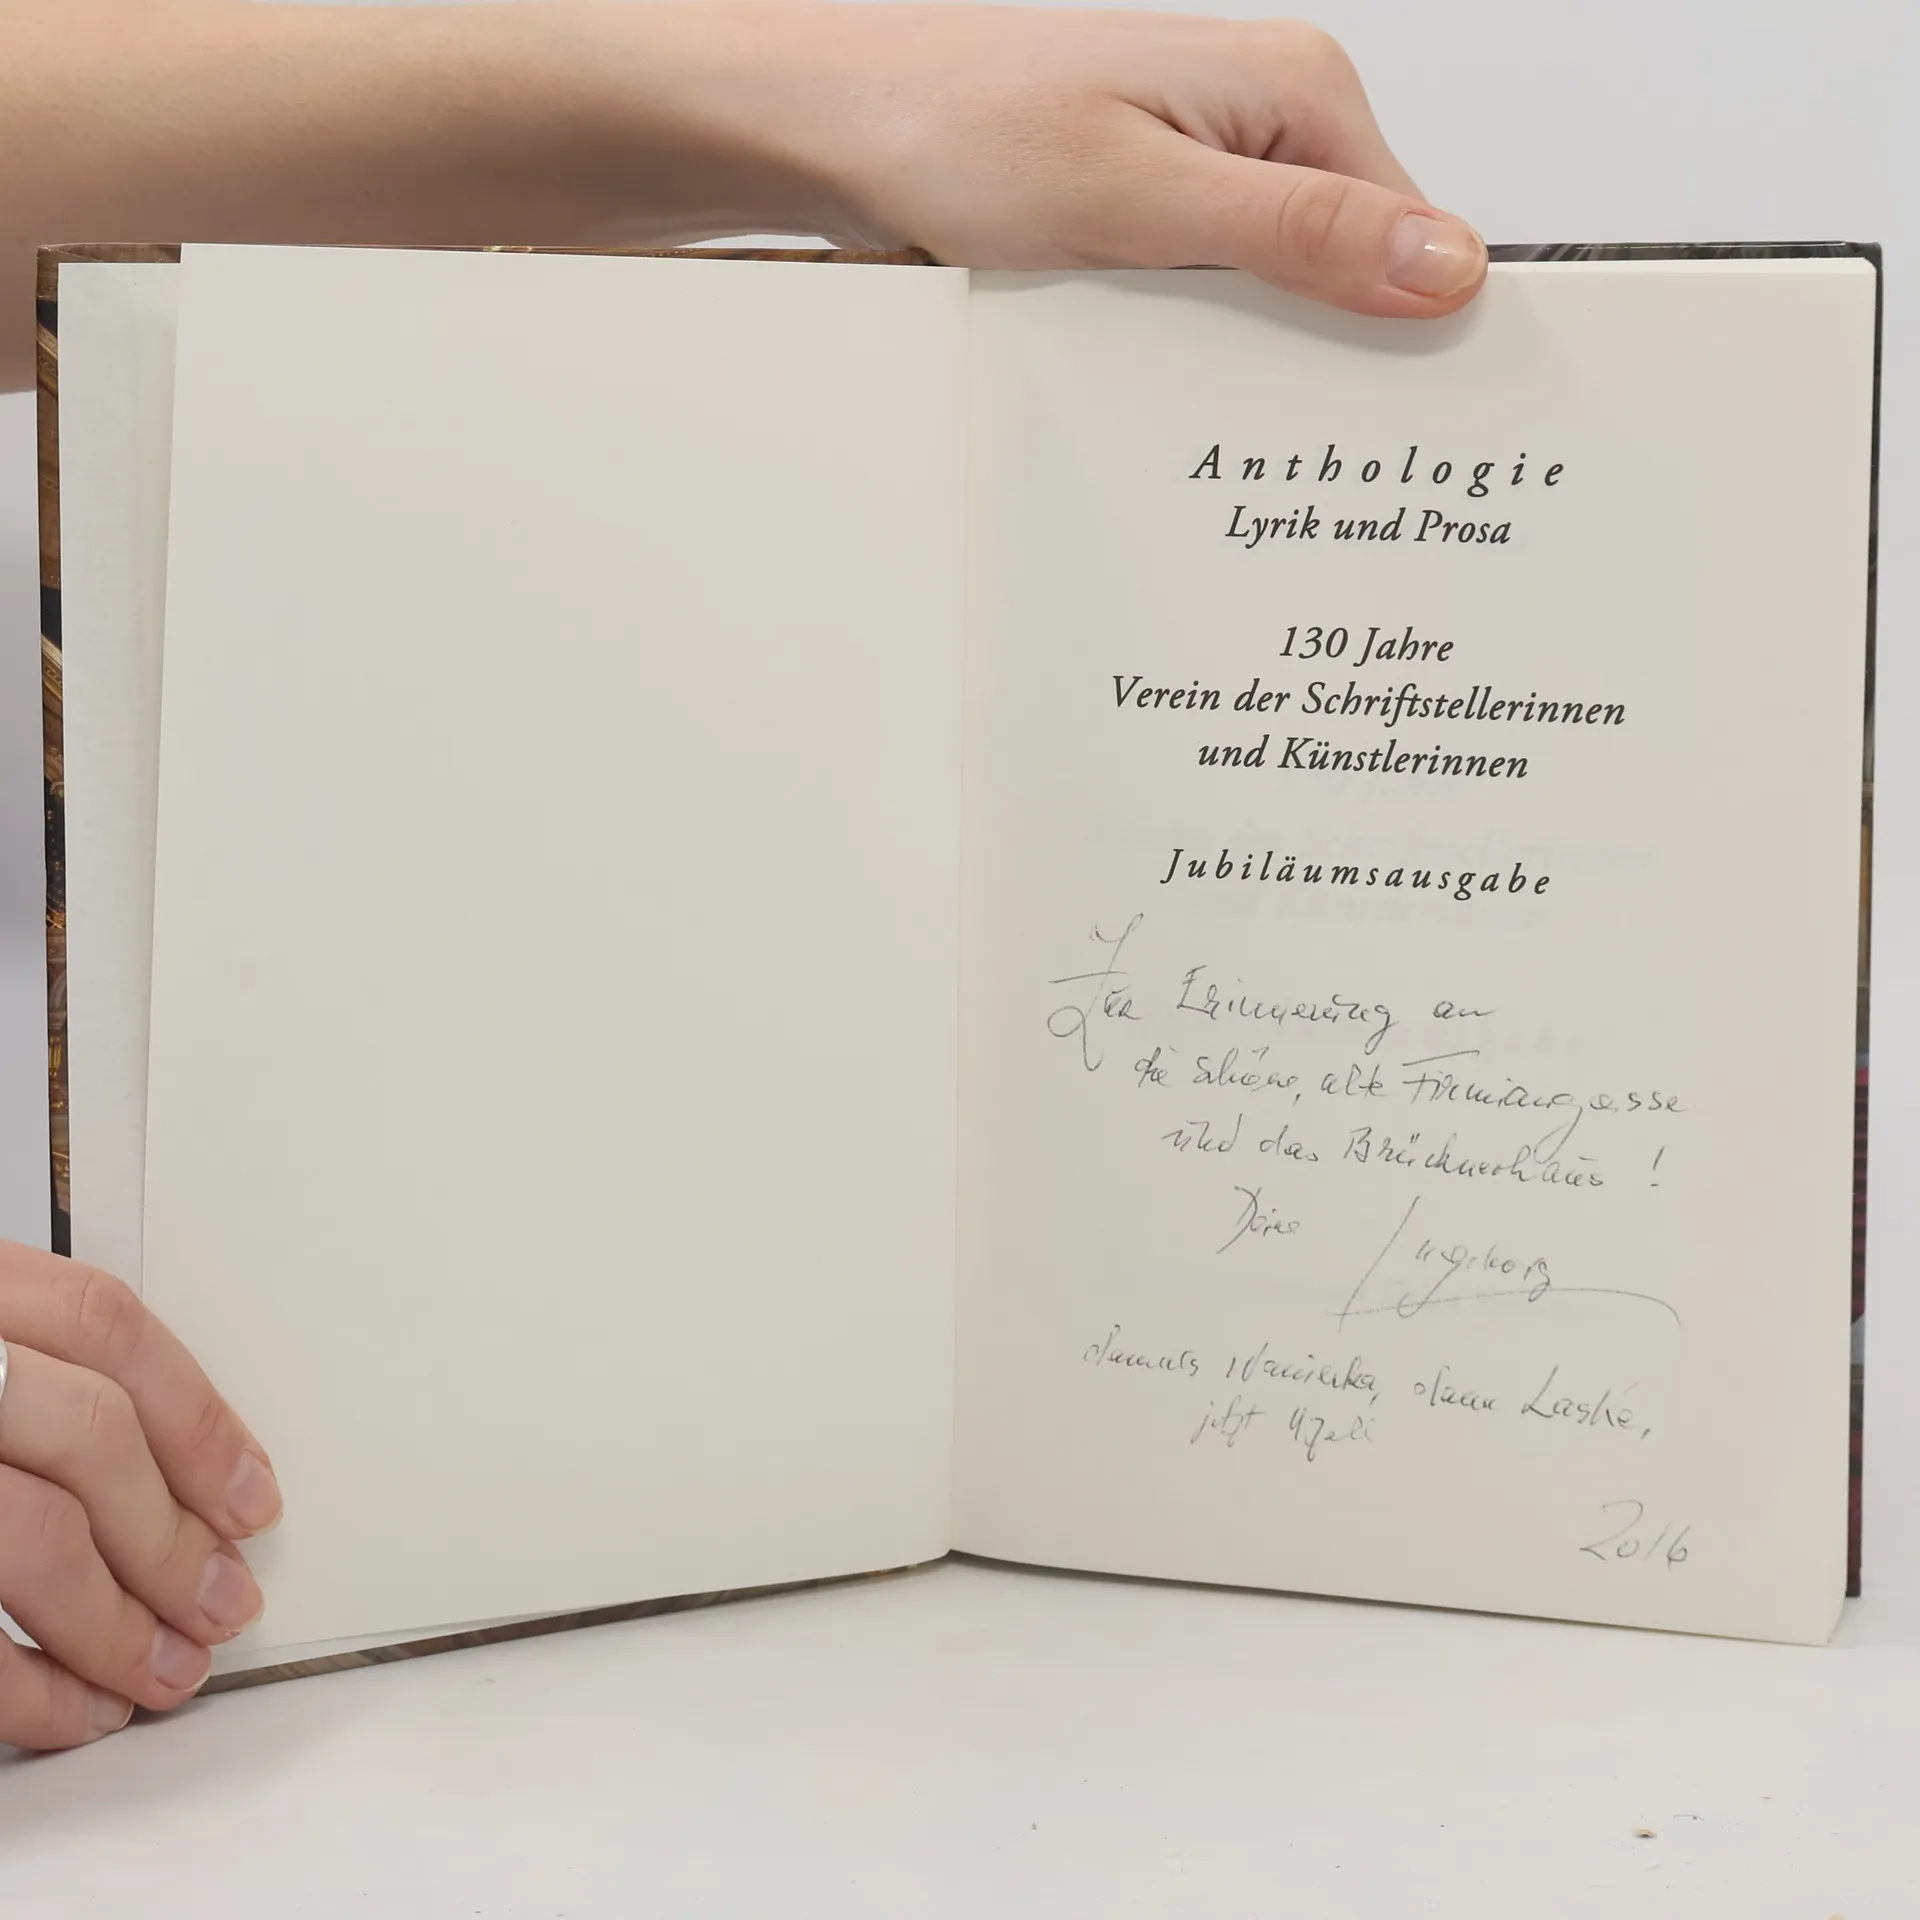 Anthologie
Lyrik und Prosa
130 Jahre
Verein der Schriftstellerinnen
und Künstlerinnen
Jubiläumsausgabe
Zur Erinnerung an
die schöne, alte Firmiangasse
und das Brücknerhaus !
Deine Ingeborg
damals dann Laske,
jetzt
2016